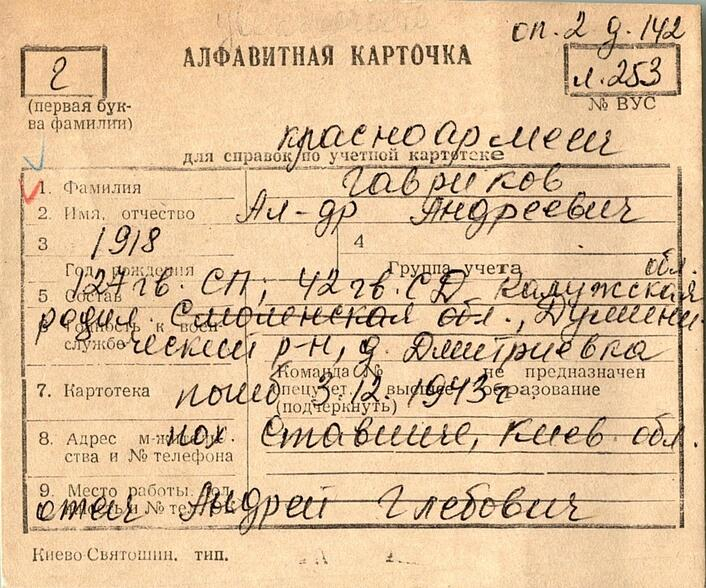 оп. 2 д. 142
АЛФАВИТНАЯ КАРТОЧКА
г
л. 253
(первая бук-
ва фамилии)
№ ВУС
красноармеец
для справок по учетной картотеке
1. Фамилия Гавриков
2. Имя, отчество Ал-др Андреевич
3 1918 4
Год рождения Группа учета обл.
127 гв. СП, 42 гв. СД Калужская
5 Состав
родил. Смоленская обл., Думини-
6 Годность к воен-
службе ческий р-н, д. Дмитриевка
Команда № не предназначен
7. Картотека погиб 3.12.1943 г.
высшее образование
(подчеркнуть)
8. Адрес пох. Ставище, Киев. обл.
ства и № телефона
9. Место работы,
и № тел
отец Андрей Глебович
Киево-Святошин. тип.